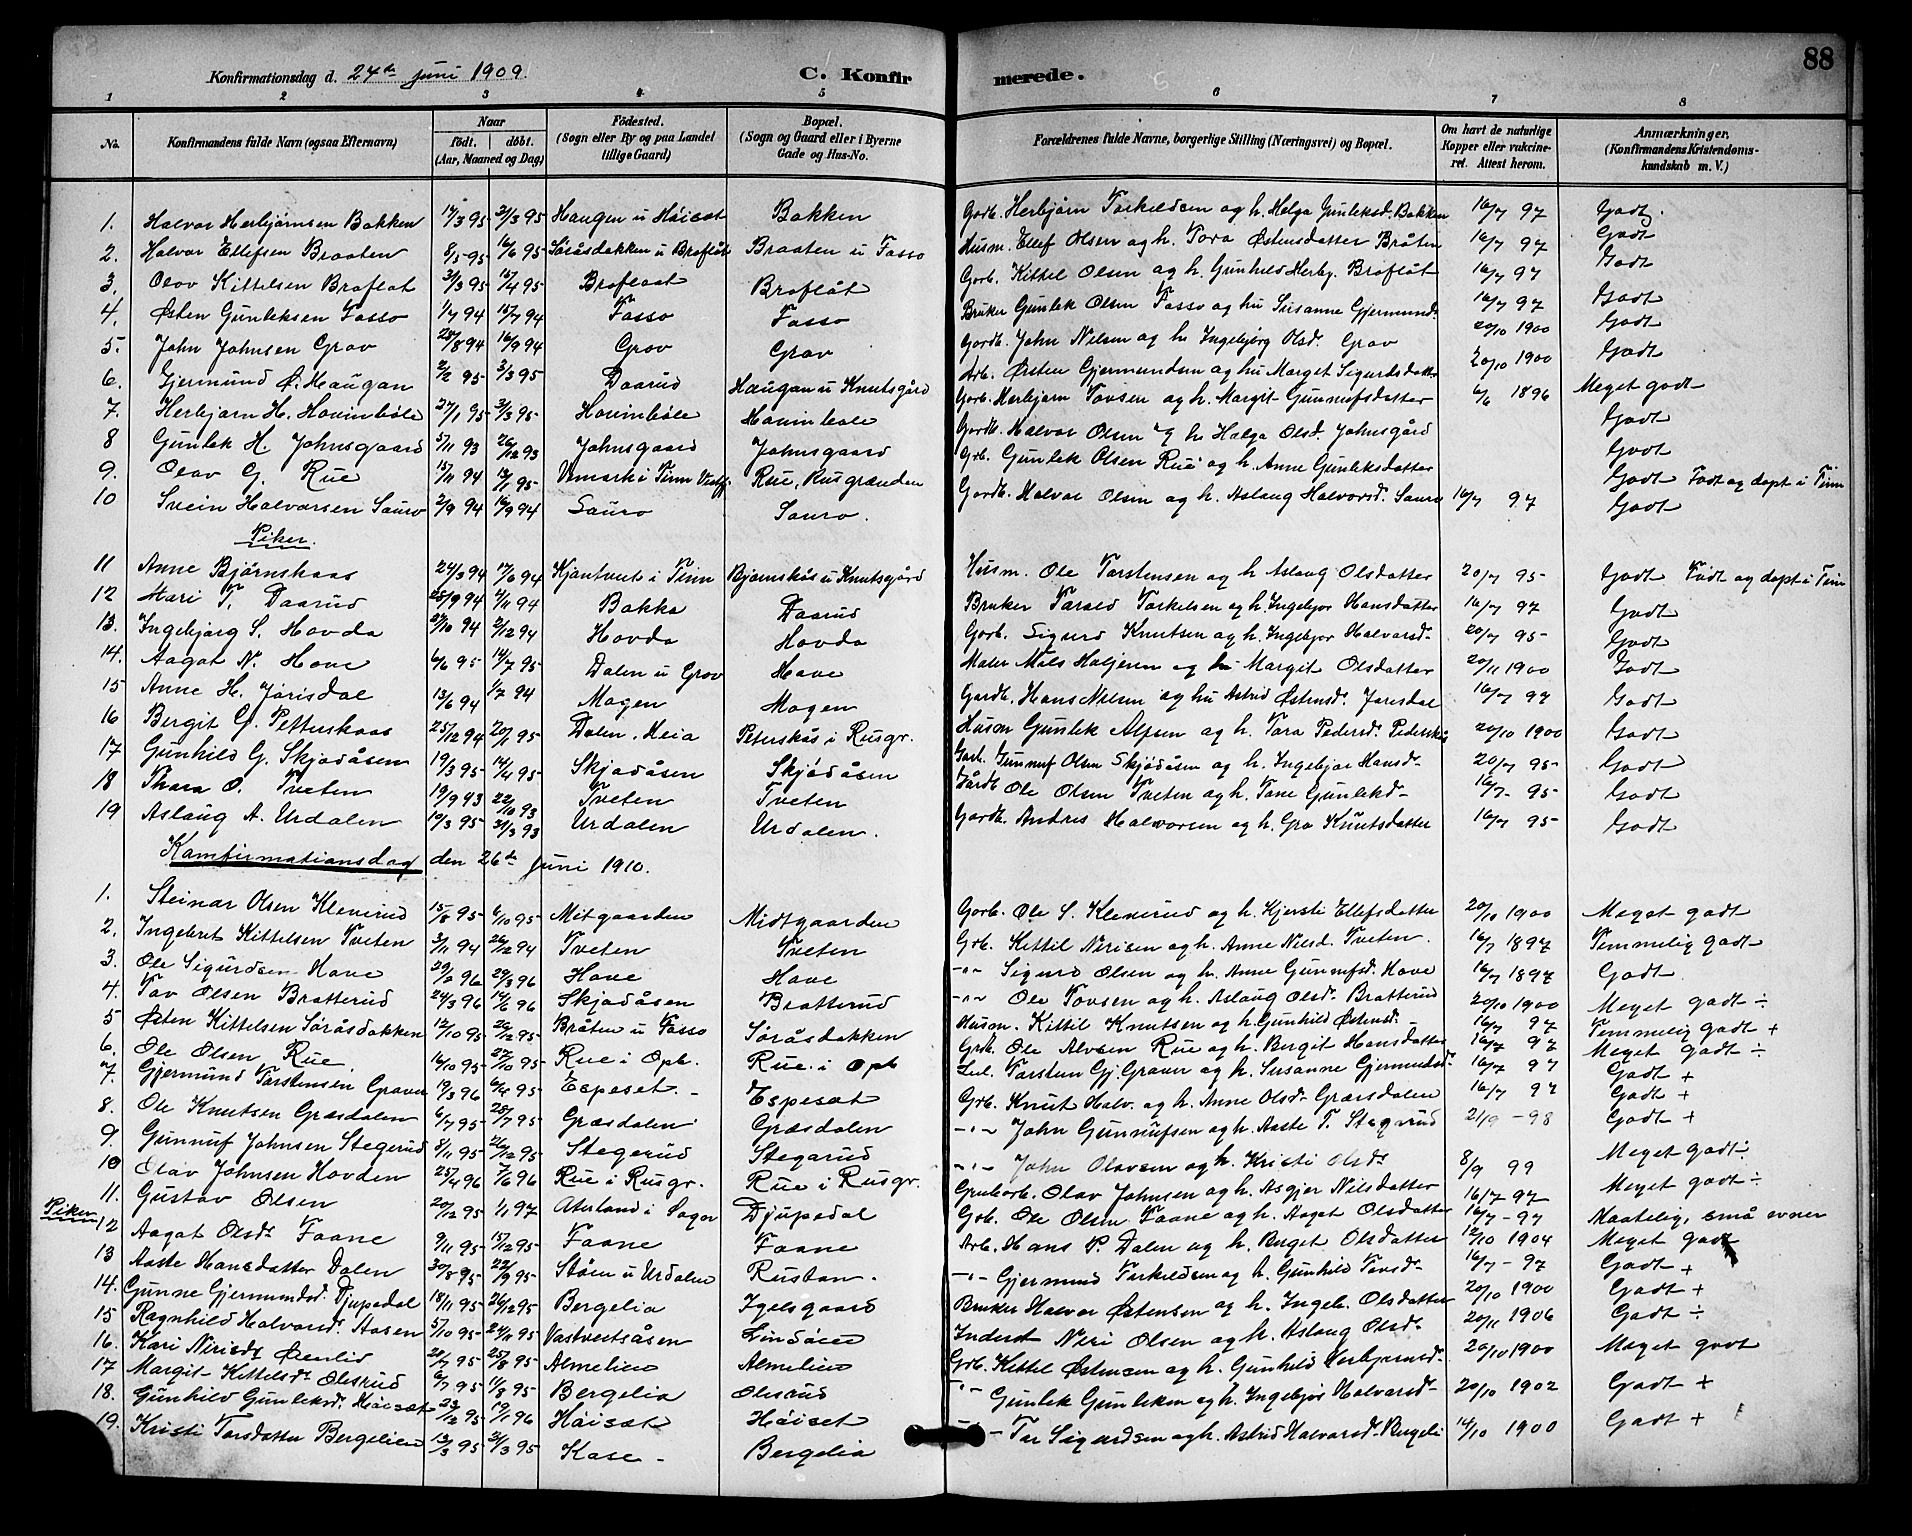 88
Konfirmationsdag d. 24de juni 1909.
C. Konfirmerede.
1 2 3 4 5 6 7 8
No.
Konfirmandens fulde Navn (ogsaa Efternavn)
Naar
født. døbt.
(Aar, Maaned og Dag)
Födested.
(Sogn eller By og paa Landet tillige Gaard)
Bopæl.
(Sogn og Gaard eller i Byerne Gade og Hus-No.
Forældrenes fulde Navne, borgerlige Stilling (Næringsvei) og Bopæl.
Om havt de naturlige Kopper eller vakcineret. Attest herom.
Anmærkninger,
(Konfirmandens Kristendomskundskab m. V.)
1. Halvor Herbjørnsen Bakken 17/3 95 31/3 95 Haugen u Håiset Bakken Gbrb. Herbjørn Torkildsen og h. Helga Gunleksd. Bakken 16/7 97 Godt.
2. Halvor Ellefsen Braaten 8/5 95 16/6 95 Søråsdokken u Broflåt Braaten u Fosso Husm. Ellef Olsen og h. Tora Østensdatter Bråten 16/7 97 Godt
3. Olav Kittelsen Broflot 3/3 95 15/4 95 Broflaat Broflåt Gbrb. Kittel Olsen og h. Gunhild Herbj. Broflåt 16/7 97 Godt
4. Østen Gunleksen Fosso 1/7 94 15/7 94 Fosso Fosso Bruker Gunlek Olsen Fosso og hu Susanne Gjermunds. 16/7 97 Godt
5. John Johnsen Grov 28/8 94 16/9 94 Grov Grov Gardb. John Nilsen og h. Ingebjørg Olsd. Grov 20/10 1900 Godt
6. Gjermund Ø. Haugan 2/2 95 3/3 95 Daarud Haugan u Knutsgård Arb. Østen Gjermundsen og hu Marget Sigurdsdatter 20/10 1900 Godt
7. Herbjørn H. Hovinbøle 27/1 95 3/3 95 Hovinbøle Hovinbøle Gorb. Herbjørn Tovsen og h. Margit Gunnufsdatter 6/6 1896 Meget godt
8 Gunlek H. Johnsgaard 5/11 93 26/12 93 Johnsgaard Johnsgaard Gardb. Halvor Olsen og h. Helga Olsd. Johnsgård Godt
9. Olav G. Rue 15/11 94 13/1 95 Vemork i Tinn Rue, Rusgrænden Grb. Gunlek Olsen Rue og h. Anne Gunleksdatter Godt
10 Svein Halvorsen Sauro 2/9 94 16/9 94 Sauro Sauro. Gardb. Halvor Olsen og h. Aslaug Halvorsd. Sauro 16/7 97 Godt Født og døpt i Tinn
Godt
Piker.
11 Anne Bjørnskaas 24/3 94 17/6 94 Kjøntveit i Tinn Bjørnskås u Knutsgård Husm. Ole Torstensen og h. Aslaug Olsdatter 20/7 95 Godt Født og døpt i Tinn
12 Mari T. Daarud 25/9 94 4/11 94 Bakka Daarud Bruker Tarald Torkelsen og h. Ingebjør Hansdatter 16/7 97 Godt
13. Ingebjørg S. Hovda 27/10 94 2/12 94 Hovda Hovda Gorb. Sigurd Knutsen og h. Ingebjør Halvorsd. 20/7 95 Godt
14. Aagot N. Hove 6/6 95 14/7 95 Dalen u Grov Hove Maler Nils Haljeren og hu Margit Olsdatter 20/11 1900 Godt
15 Anne H. Jørisdal 13/6 94 1/7 94 Mogen Mogen Gardb. Hans Nilsen og hu Astrid Østensd. Jørisdal 16/7 97 Godt
16 Bergit G. Petterskaas 25/12 94 20/1 95 Dalen, Heia Peterskås i Rusgr. Husm Gunlek Alfsen og h. Tora Pedersd. Pederskås 20/10 1900 Godt
17 Gunhild G. Skjødåsen 19/3 95 14/4 95 Skjødåsen Skjødåsen Garb. Gunnuf Olsen Skjødåsen og h. Ingebjør Hansd. 20/7 95 Godt
18 Thora O. Tveten 19/9 93 22/10 93 Tveten Tveten Gårdb Ole Olsen Tveten og h. Tone Gunleksd. 16/7 95 Godt
19 Aslaug A. Urdalen 10/3 95 31/3 93 Urdalen Urdalen. Gardb. Andres Halvorsen og h. Gro Knutsdatter 16/7 95 Godt
Konfirmationsdag den 26de juni 1910.
1. Steinar Olsen Kleverud 15/8 95 6/10 95 Mitgaarden Midtgaarden Gorb. Ole S. Kleverud og h. Kjersti Ellefsdatter 20/10 1900 Meget godt
2. Ingebret Kittelsen Tveten 3/11 94 26/12 94 Tveten Tveten Grb. Kittil Nirisen og h. Anne Nilsd. Tveten. 16/7 1897 Temmelig godt
3. Ole Sigurdsen Hove 20/2 96 29/3 96 Hove Hove -"- Sigurd Olsen og h. Anne Gunnufsd. Hove 16/7 1897 Godt
4. Tov Olsen Bratterud 24/3 96 14/6 96 Skjødåsen Bratterud -"- Ole Tovsen og h. Aslaug Olsd. Bratterud 20/10 1900 Meget godt ÷
5 Østen Kittelsen Søråsdokken 12/10 95 26/12 95 Bråten u Fosso Søråsdokken Husm. Kittil Knutsen og h. Gunhild Østensd. 16/7 97 Temmelig godt +
6. Ole Olsen Rue 16/10 95 27/10 95 Rue i Opb. Rue i Opb Grb. Ole Alvsen Rue og h. Bergit Hansdatter 16/7 97 Meget godt ÷
7. Gjermund Torstensen Graver 19/3 96 6/4 95 Espeset. Espeset Torsten Gj. Graver og h. Susanne Gjermundsd. 16/7 97 Godt +
8. Ole Knutsen Græsdalen 6/7 95 28/7 95 Græsdalen Græsdalen Grb. Knut Halv. og h. Anne Olsd. Græsdalen 16/7 97 Godt +
9. Gunnuf Johnsen Stegerud 8/11 95 26/12 95 Stegerud Stegarud -"- John Gunnufsen og h. Aaste T. Stegarud 21/9 - 98 Godt +
10 Olav Johnsen Hovden 25/4 96 7/6 96 Rue i Rusgr. Rue i Rusgr. -"- John Olavsen og h. Kristi Olsd. 8/9 99 Meget godt ÷
11. Gustav Olsen 20/12 95 1/1 97 i Djupedal Olav Johnsen og h. Asgjer Nilsdatter 16/7 97 Meget godt ÷
Piker
12 Aagot Olsd. Faane 9/11 95 15/12 95 Faane Faane Grb. Ole Olsen Faane og h. Aagot Olsdatter 16/7 - 97 Maatelig, små evner
13 Aaste Hansdatter Dalen 30/8 95 22/9 95 Støen u Urdalen Rustan. Arb. Hans P. Dalen og h. Berget Olsdatter 12/10 1904 Meget godt
14. Gunne Gjermundsd. Djupedal 18/11 95 26/12 95 Bergelia Igelsgaard -"- Gjermund Torkildsen og h. Gunhild Tovsd. 16/7 - 97 Godt +
15 Ragnhild Halvorsd. Aasen 5/10 95 24/11 95 Vastveitsåsen Bruker Halvor Østensen og h. Ingeb. Olsdatter 20/10 1900 Godt +
16. Kari Nirisd. Ørnlid 20/7 95 25/8 95 Almelien Almelien Inderst Niri Olsen og h. Aslaug Olsd. 20/11 1906 Godt ÷
17 Margit Kittelsd. Olsrud 6/7 95 11/8 95 Bergelia Olsrud Grb. Kittil Østensen og h. Gunhild Herbjørnsd. 20/10 1900 Meget godt
18. Gunhild Gunleksd. Håiset 23/12 95 19/1 96 Håiset Håiset -"- Gunlek Gunleksen og h. Ingebjør Halvorsd. 20/10 1902 Godt +
19. Kristi Torsdatter Bergelien 13/3 95 31/3 95 Kase - Bergelia -"- Tor Sigurdsen og h. Astrid Halvorsd. Bergeli 14/10 1900 Godt +